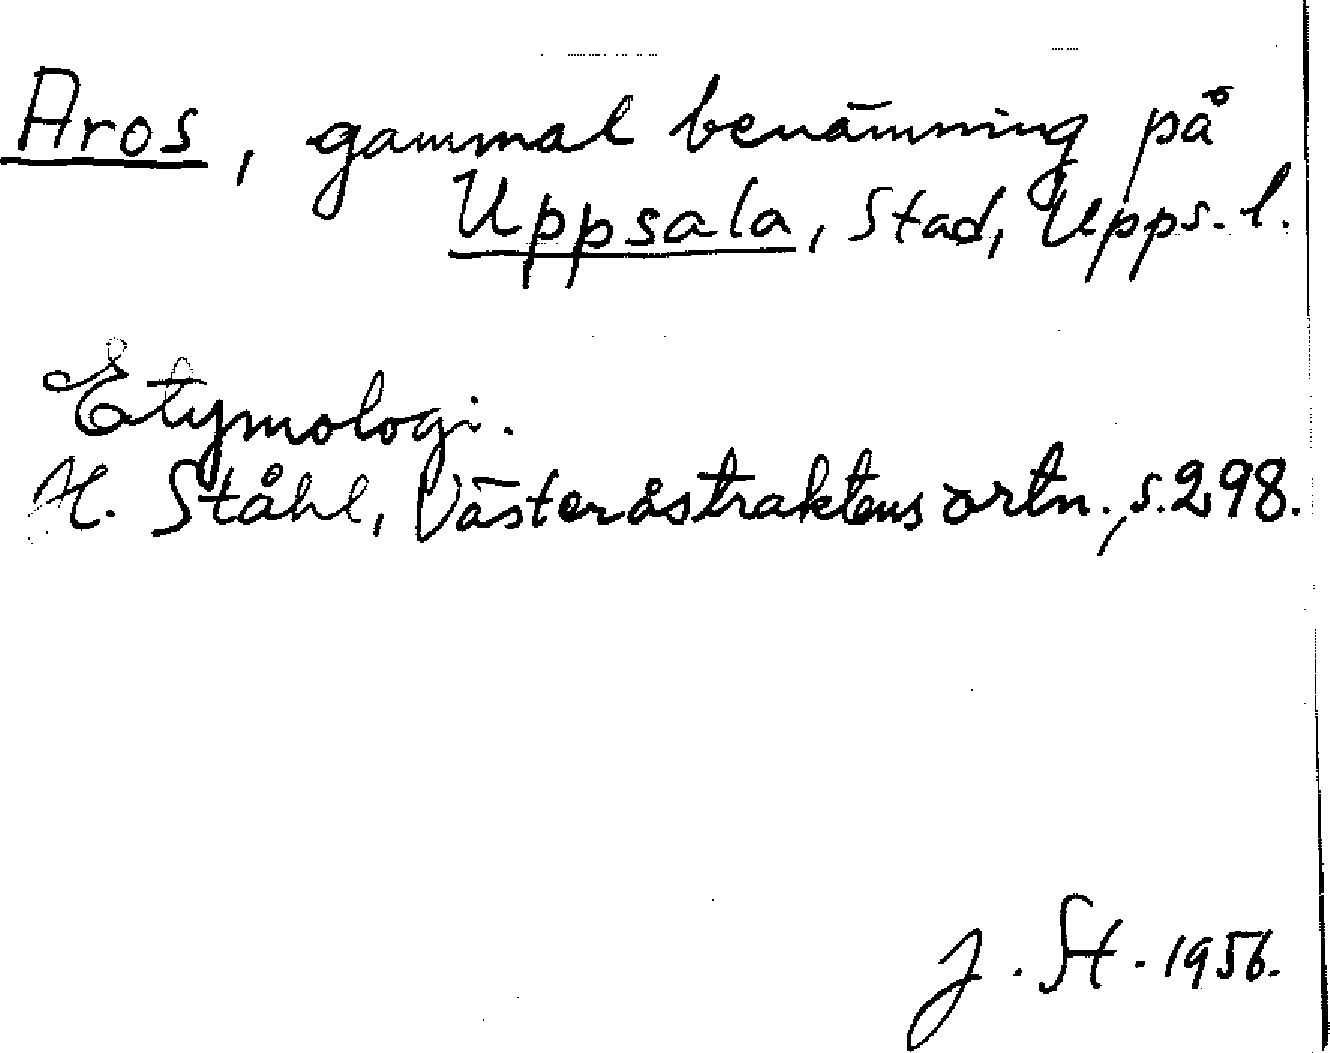 Aros, gammal benämning på
Uppsala, stad, Upps. l.
Etymologi.
H. Ståhl, Västeråstraktens ortn., s. 298.
J. St. 1956.